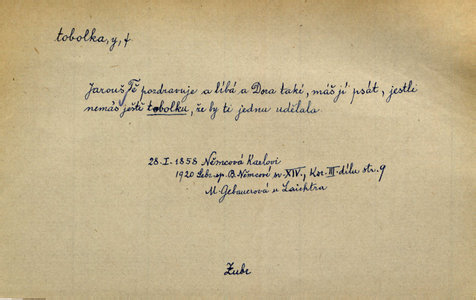 tobolka, y, f
Jarouš Tě pozdravuje a líbá a Dora také, máš jí psát, jestli
nemáš ještě tobolku, že by ti jednu udělala
28. I. 1858 Němcová Karlovi
1920 Sebr. sp. B. Němcové sv. XIV., Kor. III. dílu str. 9
M. Gebauerová u Laichtra
Zubr